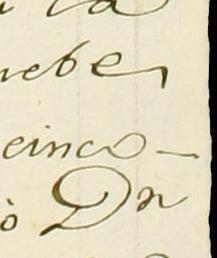 la
nebe
einco
ò Dn